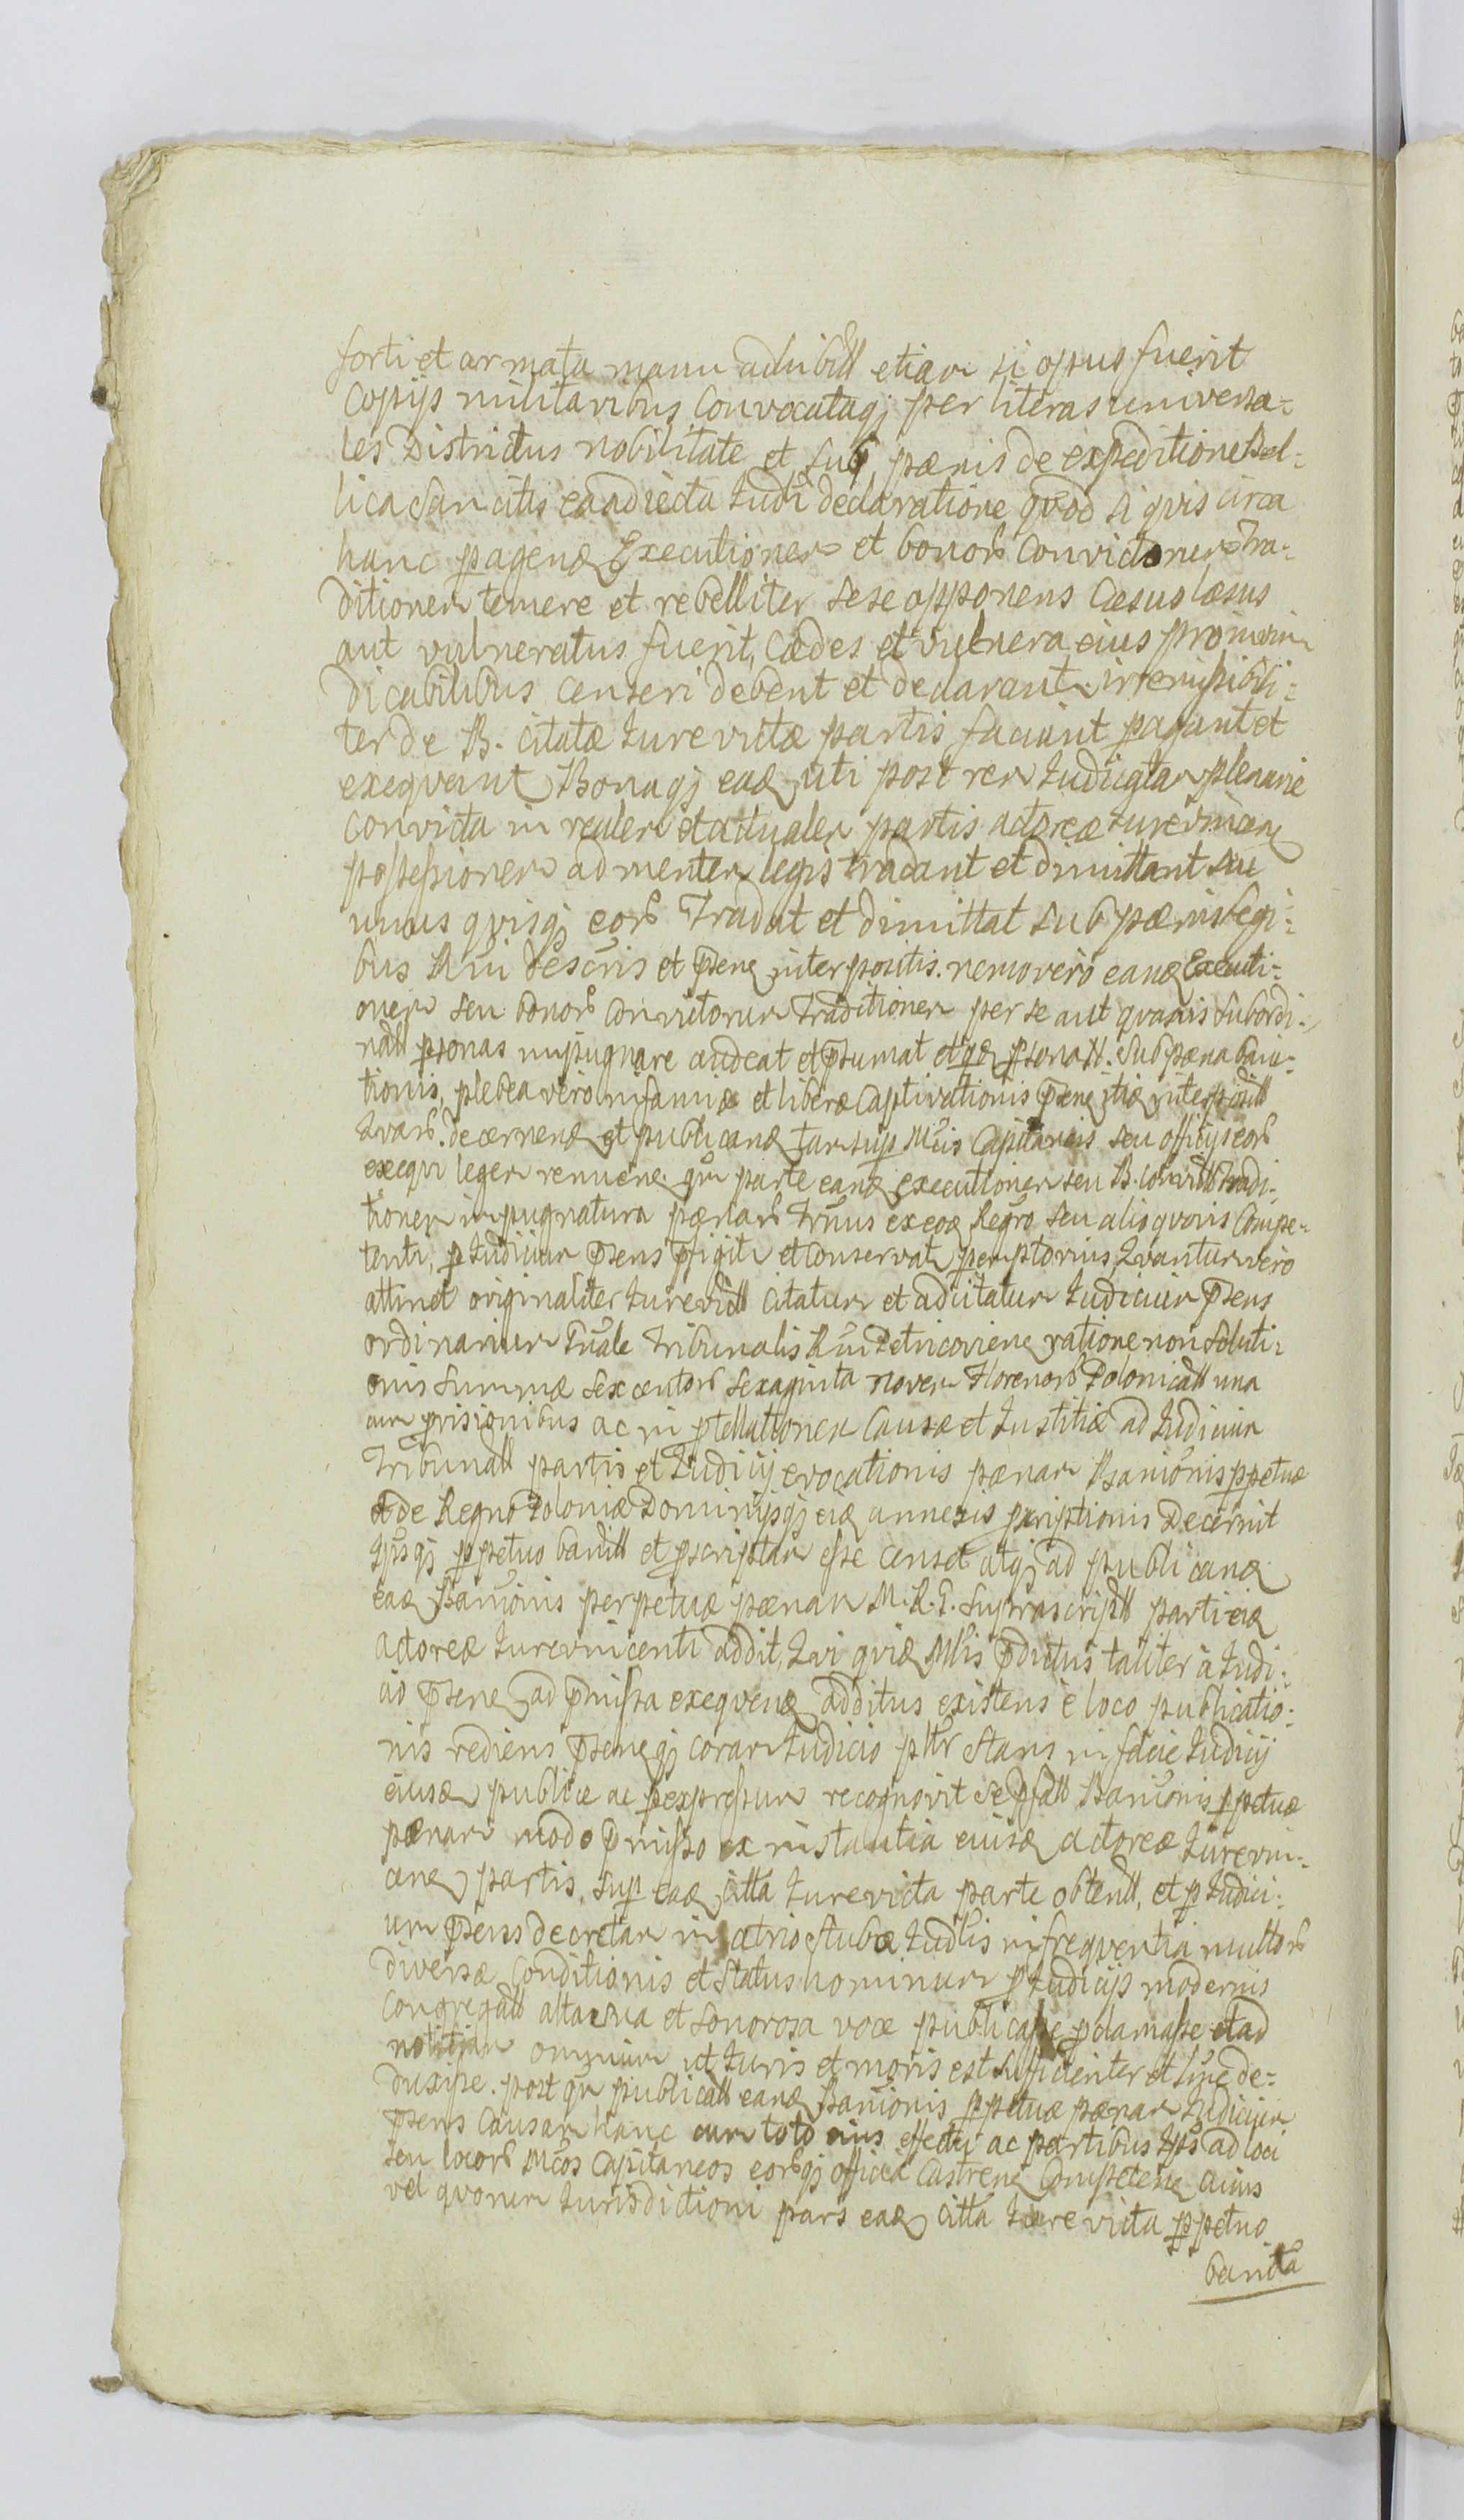 forti et armata manu adhibitt etiam si opus fuerit
Copijs militaribus Convocataqj per literas universa=
les Districtus nobilitate et sub pœnis de expeditione Bel=
lica sancitis ea adiecta Judi declaratione quod si quis circa
hanc pagenq Executionem et bonor Convictorum Tra=
ditionem temere et rebelliter sese opponens Cæsus læsus
aut vulneratus fuerit, Cædes et vulnera eius pro in vin
dicabilibus Censeri debent et declarant irremissibili=
ter de B. citatæ Jurevictæ partis faciant pagant et
exequant Bonaqj eaq uti post rem Judicatam plenarie
convicta in realem et actualem partis actoreæ Jurevincen
possessionem ad mentem legis tradant et dimittant seu
unus quisqj eor Tradat et dimittat sub pœnis legi=
bus Rni descris et psenq interpositis. nemo vero eanq Executi=
onem seu bonor Convictorum Traditionem per se aut quasvis subordi=
natt psonas impugnare audeat et psumat et qq psona tt. Sub pœna bani=
tionis, plebea vero infamiæ et liberæ Captivationis psenq itiq interpositt
Quar. decernenq et publicanq tam sup Mcis Capitaneis seu officijs eor
exequi legem renuenq qm parte eanq executionem seu B. Convictt Tradi=
tionem impugnatura pœnar Trnus ex eoq Regro seu alio quovis Compe=
tenti, p Judicium psens pfigit et Conservat peremptorius, Quantum vero
attinet originaliter Jurevictt Citatum et adcitatum Judicium psens
ordinarium Gnale Tribunalis Rni Petricovienq ratione non soluti=
onis summæ sexcentor sexaginta novem Florenor Polonicatt una
cum prisionibus ac in ptellationem Causæ et Justitiæ ad Judicium
Tribunatt partis et Judicij evocationis pœnam Banionis ppetuæ
et de Regno Poloniæ Dominijsqj eiq annexis pscriptionis Decernit
Ipsqj ppetuo banitt et pscriptam esse censet atqj ad publicanq
eaq Banionis perpetuæ pœnam M. R. G. suprascriptt parti eiq
actoreæ Jurevincenti addit, Qui quiq Mtis pdictus taliter à Judi=
cio psenq ad pmissa exequenq additus existens è loco publicatio=
nis rediens psenqqj coram Judicio pltr stans in facie Judicij
eiusq publice ac pexpressum recognovit se pfatt Banionis ppetuæ
pœnam modo pmisso ex instantia eiusq actoreæ Jurevin=
cenq partis, sup eaq citta Jurevicta parte obtentt, et p Judici=
um psens decretam in atrio stubæ Judlis in frequentia multor
diversæ Conditionis et status hominum p Judicijs modernis
Congregatt alta sua et sonorosa voce publicasse pclamasse et ad
notitiam omnium ut Juris et moris est sufficienter et sine de=
duxisse. post qm publicatt eanq Banionis ppetuæ pœnam Judicium
psens Causam hanc cum toto eius effectu ac partibus Ips ad loci
seu locor Mcos Capitaneos eorqj officia Castrenq Competenq Cuius
vel quorum Jurisdictioni pars eaq citta Jure victa ppetuo
banita